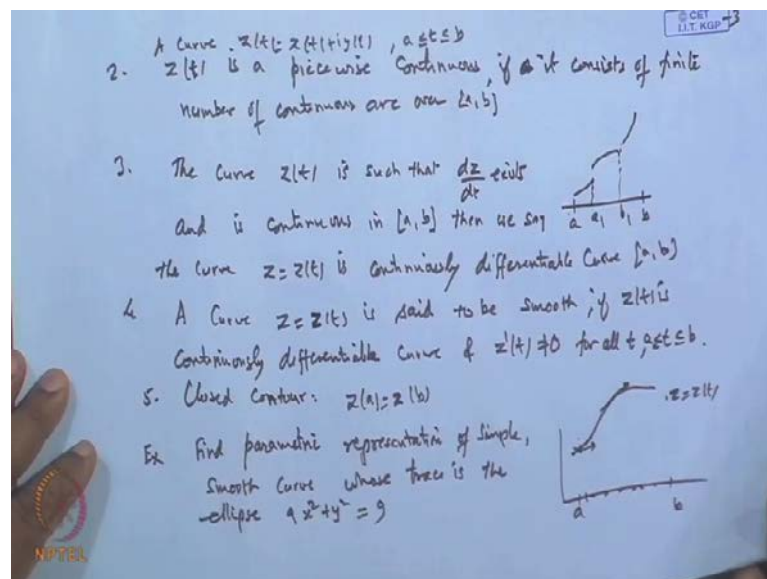 © CET
I.I.T. KGP
A Curve . z(t) = x(t)+iy(t) , a ≤ t ≤ b
2. z(t) is a piecewise Continuous, if it consists of finite
number of continuous arc over [a,b]
3. The Curve z(t) is such that dz/dt exists
and is continuous in [a,b] then we say
a a₁ b₁ b
the Curve z = z(t) is continuously differentiable Curve [a,b]
4 A Curve z = z(t) is said to be smooth, if z(t) is
Continuously differentiable Curve & z'(t) ≠ 0 for all t, a ≤ t ≤ b.
5. Closed Contour: z(a) = z(b)
z = z(t)
Ex Find parametric representation of Simple,
Smooth Curve whose trace is the
ellipse 9x²+y² = 9
a b
NPTEL